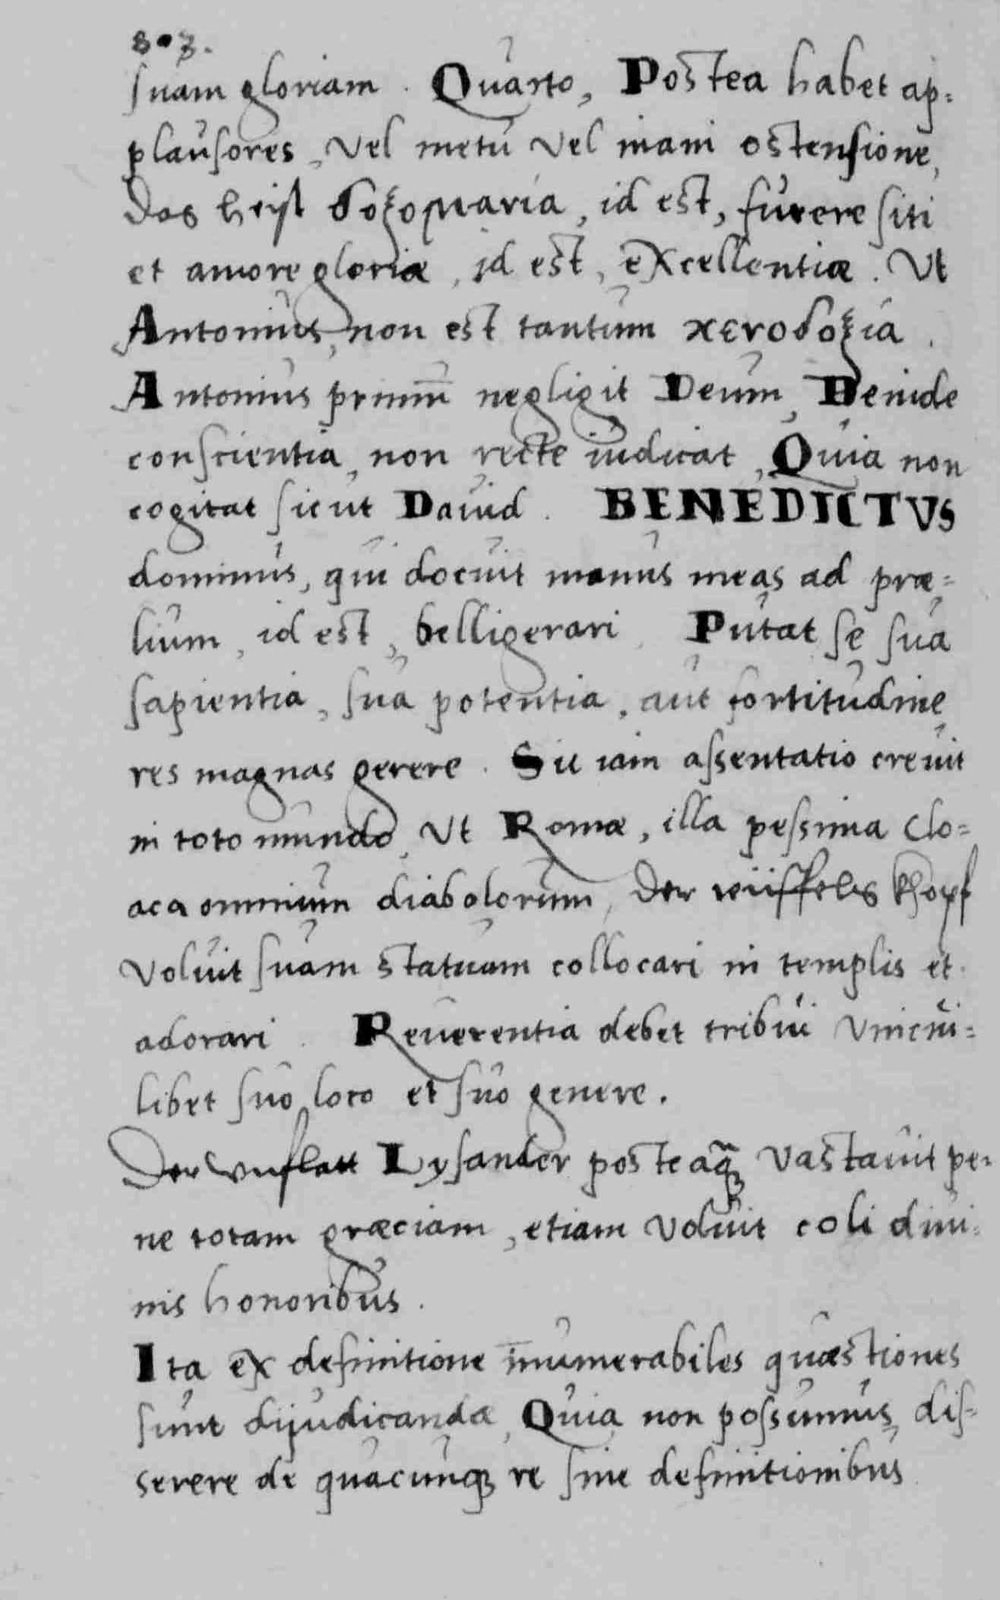 807.
suam gloriam. Quarto, Postea habet ap-
plausores, vel metu vel inani ostensione,
Das heist δοξομανια, id est, furere siti
et amore gloriæ, id est, excellentiæ. Ut
Antonius, non est tantum κενοδοξια.
Antonius primū negligit Deum, Deinde
conscientia, non recte iudicat, Quia non
cogitat sicut Dauid. BENEDICTVS
dominus, qui docuit manus meas ad præ-
lium, id est, belligerari, Putat se sua
sapientia, sua potentia, aut fortitudine
res magnas gerere. Sic iam assentatio creuit
in toto mundo, Ut Romæ, illa pessima Clo-
aca omnium diabolorum, Der
voluit suam statuam collocari in templis et
adorari. Reuerentia debet tribui vnicui-
libet suo loco et suo genere.
Der vnflatt Lysander posteaq̃ vastauit pe-
ne totam græciam, etiam voluit coli diui-
nis honoribus.
Ita ex definitione innumerabiles quæstiones
sunt dijudicandæ, Quia non possumus dis-
serere de quacunq; re sine definitionibus